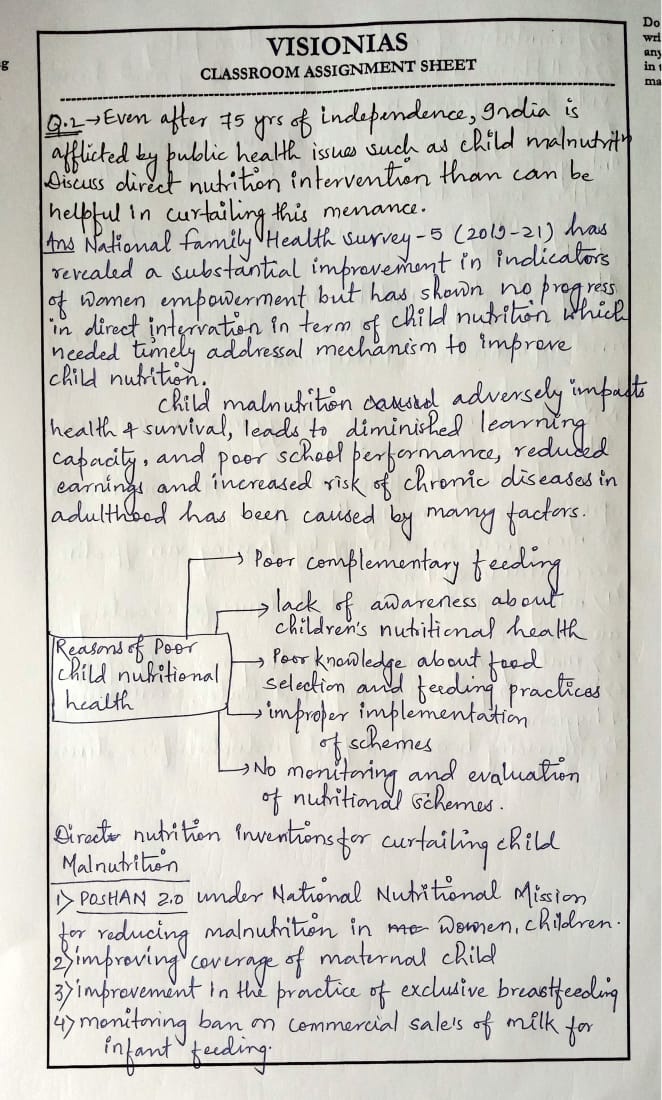 g
Do
wri
any
in t
ma
VISIONIAS
CLASSROOM ASSIGNMENT SHEET
Q.2→Even after 75 yrs of independence, India is
afflicted by public health issues such as child malnutritn
Discuss direct nutrition intervention than can be
helpful in curtailing this menance.
Ans National family Health survey-5 (2019-21) has
revealed a substantial improvement in indicators
of women empowerment but has shown no progress
in direct intervation in term of child nutrition which
needed timely addressal mechanism to improve
child nutrition.
child malnutrition caused adversely impacts
health & survival, leads to diminished learning
capacity, and poor school performance, reduced
earnings and increased risk of chronic diseases in
adulthood has been caused by many factors.
→ Poor complementary feeding
→ lack of awareness about
children's nutritional health
Reasons of Poor
child nutritional
health
→ Poor knowledge about food
selection and feeding practices
→ improper implementation
of schemes
→ No monitoring and evaluation
of nutritional schemes.
Direct nutrition inventions for curtailing child
Malnutrition
1> POSHAN 2.0 under National Nutritional Mission
for reducing malnutrition in me women, children.
2> improving coverage of maternal child
3> improvement in the practice of exclusive breastfeeding
4> monitoring ban on commercial sale's of milk for
infant feeding.